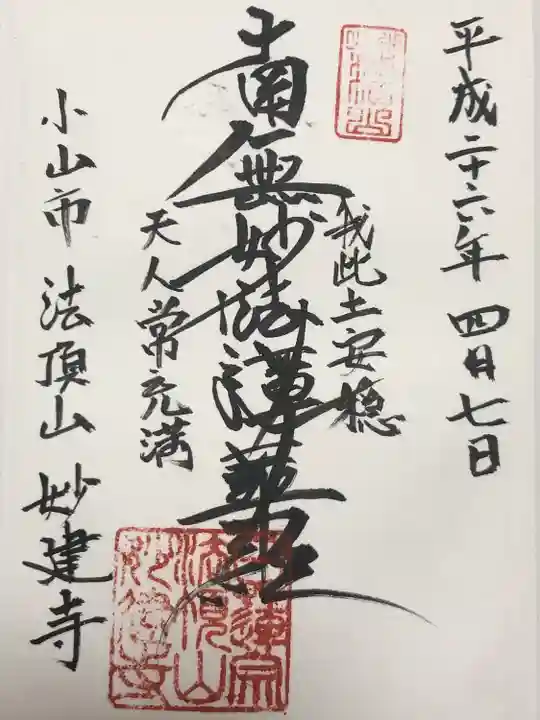 平成二十六年四月七日
我此土安穏
南無妙法蓮華経
天人常充満
小山市 法頂山 妙建寺
日蓮宗
法頂山
妙建寺